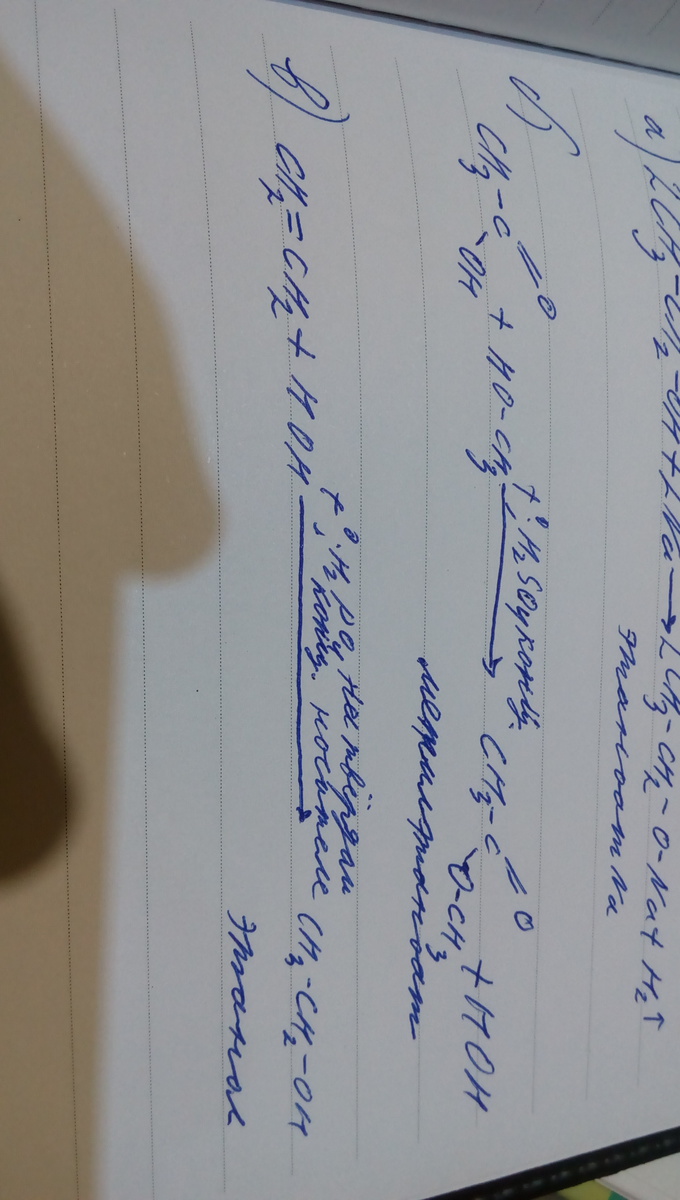 а) 2CH3-CH2-OH + 2Na → 2CH3-CH2-O-Na + H2↑
этаноат Na
б) CH3-C(=O)-OH + HO-CH3 → (t°; H2SO4 конц.) CH3-C(=O)-O-CH3 + HOH
метилэтаноат
в) CH2=CH2 + HOH → (t°; H3PO4 конц. на твёрдом носителе) CH3-CH2-OH
этанол